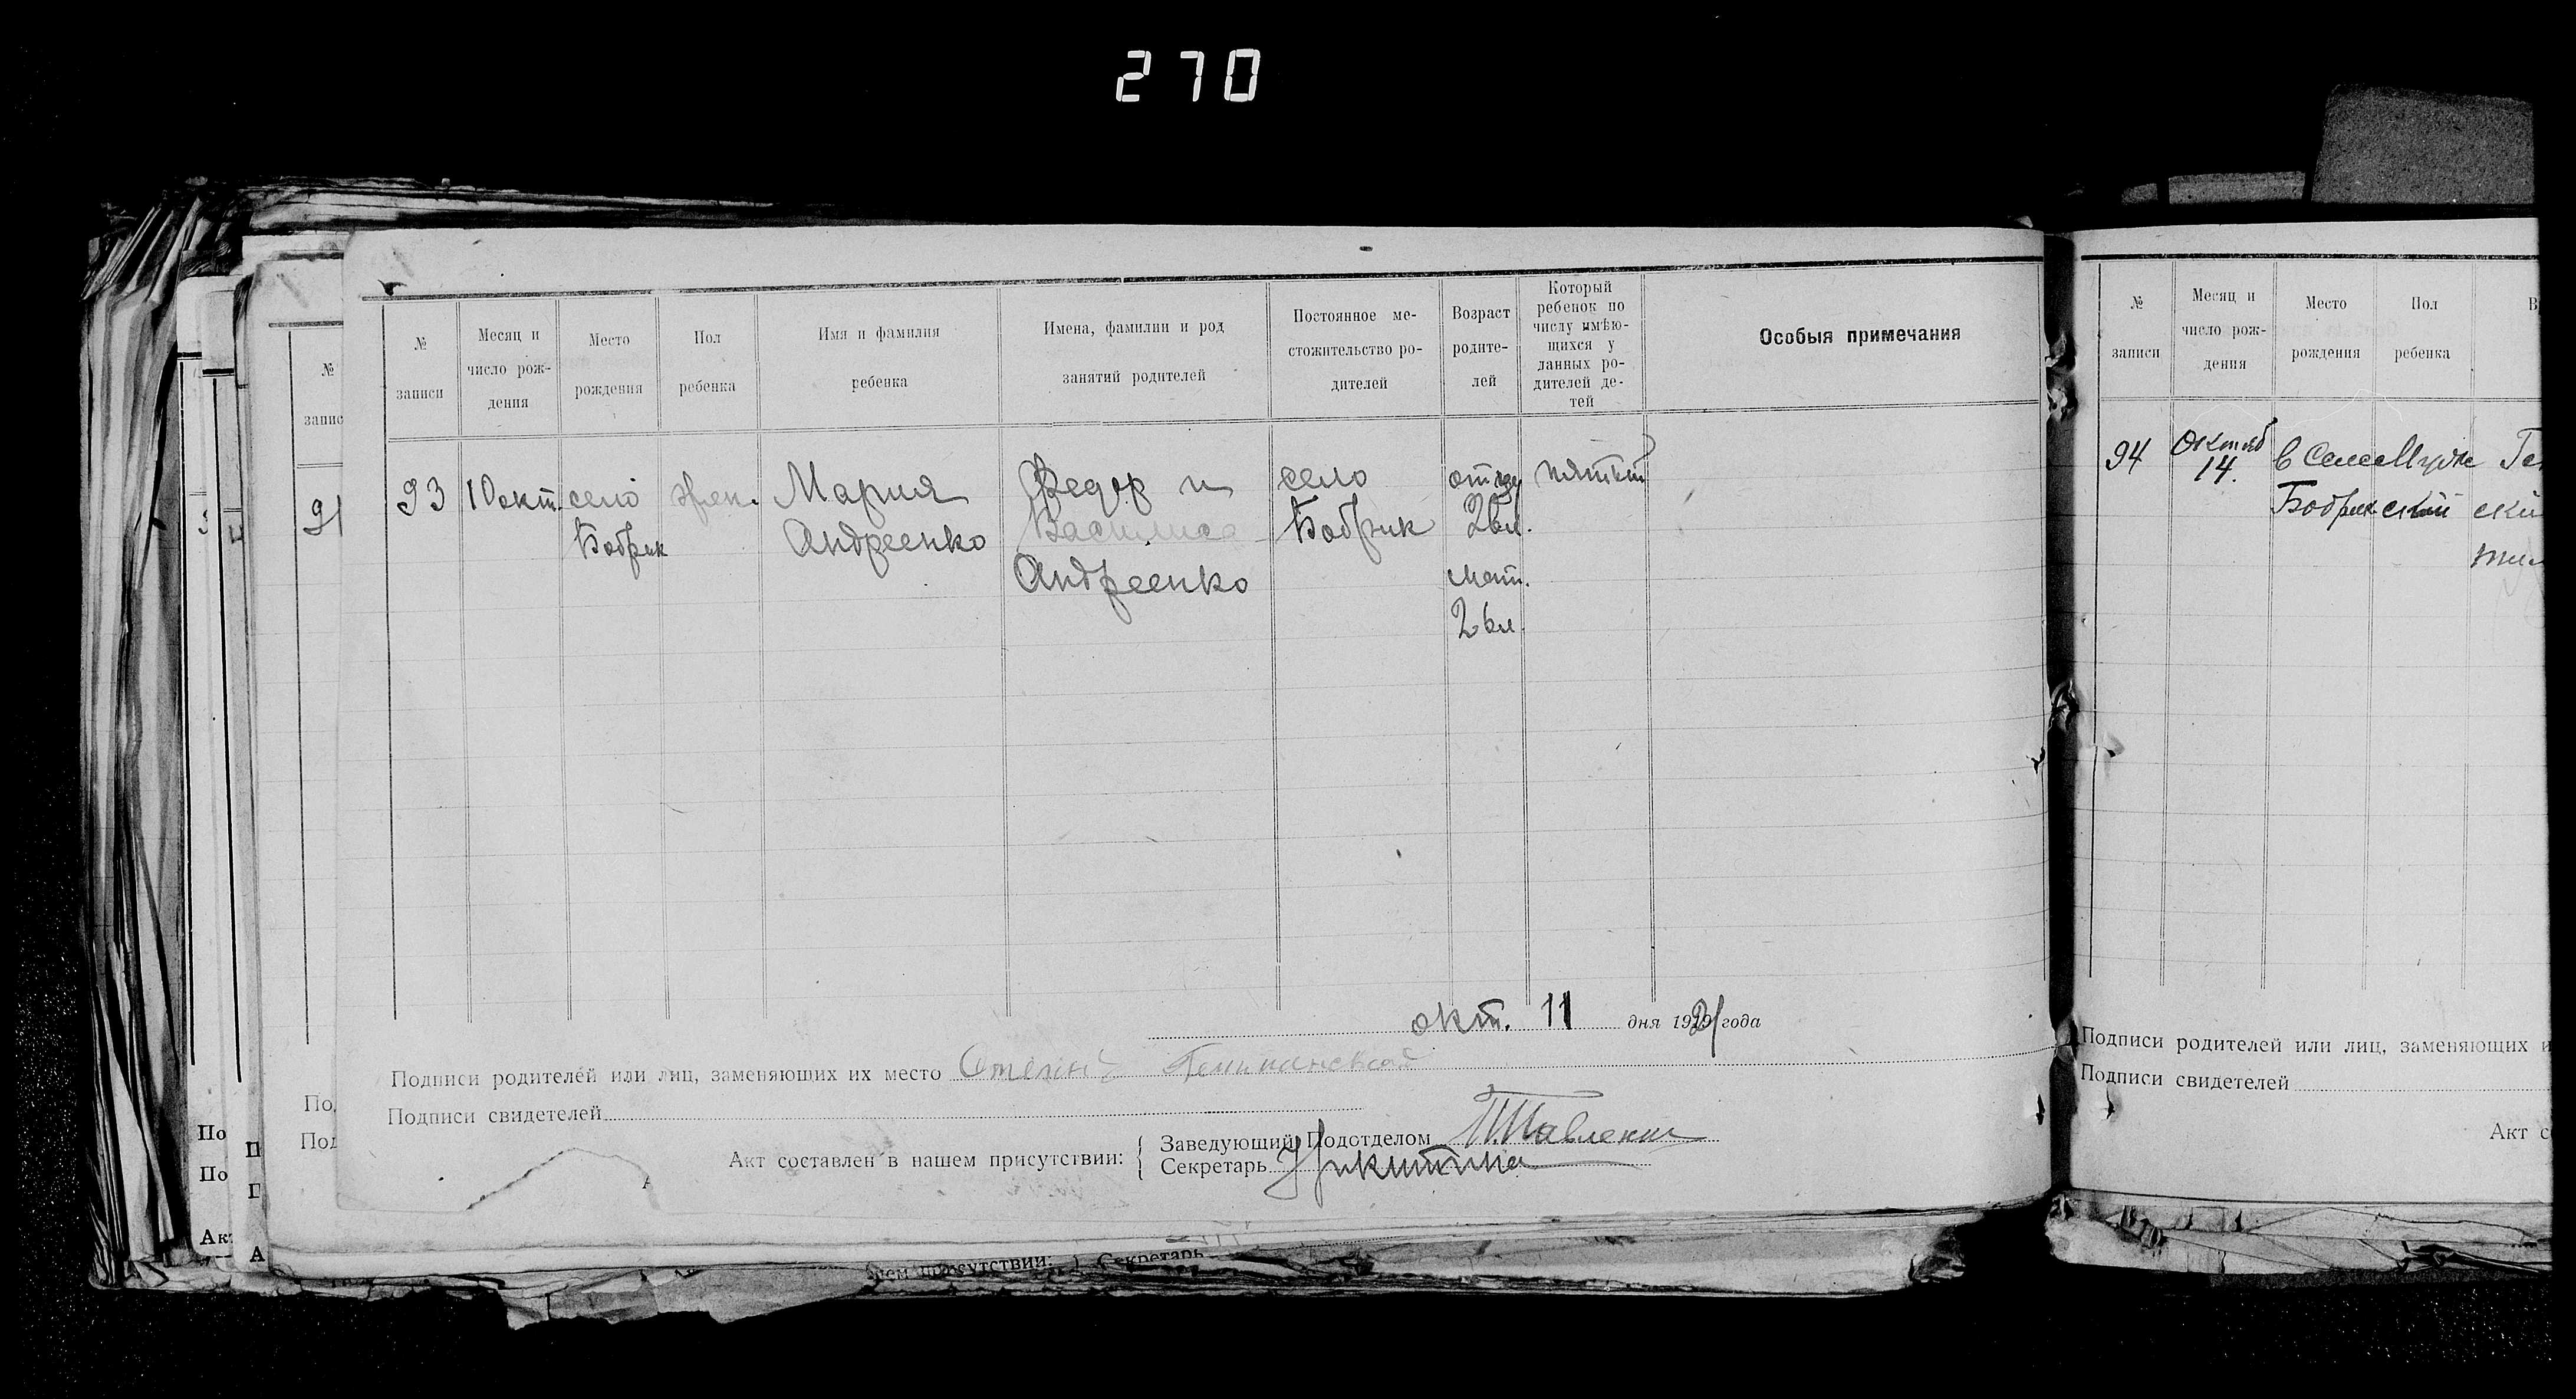 270
№ записи
Месяц и число рождения
Место рождения
Пол ребенка
Имя и фамилия ребенка
Имена, фамилии и род занятий родителей
Постоянное местожительство родителей
Возраст родителей
Который ребенок по числу имѣющихся у данных родителей детей
Особыя примечания
93 10 окт. село жен. Мария Федор и село отцу пятый
Бобрик Андреенко Василиса Бобрик
Андреенко мат.
окт. 11 дня 1921 года
Подписи родителей или лиц, заменяющих их место
Подписи свидетелей
Акт составлен в нашем присутствии:
Заведующий Подотделом
Секретарь Никитина
№ записи
Месяц и число рождения
Место рождения
Пол ребенка
94 Октяб 14. в Селе Муж
Бобрик ский
Подписи родителей или лиц, заменяющих и
Подписи свидетелей
Акт с
№
запис
91
По
Под
По
По
Ак
присутствии: Секретарь